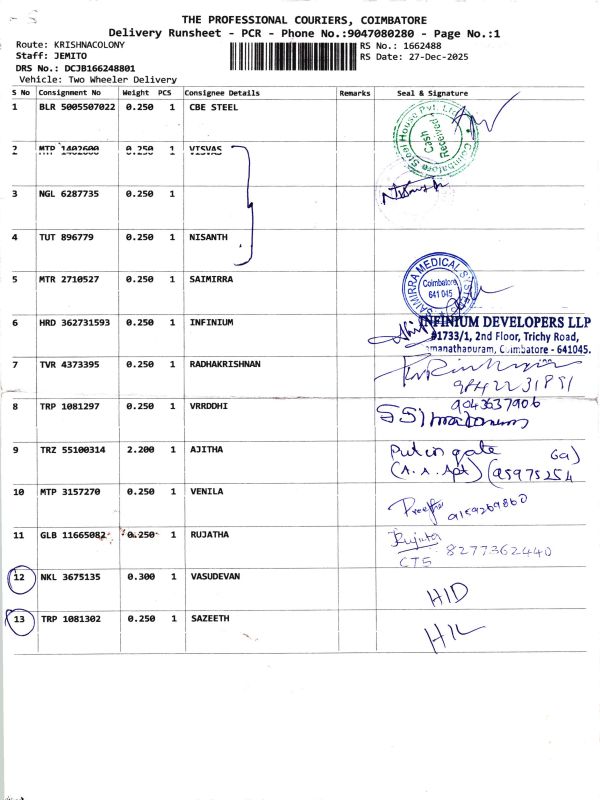 THE PROFESSIONAL COURIERS, COIMBATORE
Delivery Runsheet - PCR - Phone No.:9047080280 - Page No.:1
Route: KRISHNACOLONY
RS No.: 1662488
Staff: JEMITO
RS Date: 27-Dec-2025
DRS No.: DCJB166248801
Vehicle: Two Wheeler Delivery
S No Consignment No Weight PCS Consignee Details Remarks Seal & Signature
1 BLR 5005507022 0.250 1 CBE STEEL
Steel House Pvt. Ltd. Coimbatore
Cash Received
2 MTP 1402600 0.250 1 VISVAS
3 NGL 6287735 0.250 1
4 TUT 896779 0.250 1 NISANTH
5 MTR 2710527 0.250 1 SAIMIRRA
SAIMIRRA MEDICAL SYSTEMS
Coimbatore
641 045
6 HRD 362731593 0.250 1 INFINIUM
INFINIUM DEVELOPERS LLP
1733/1, 2nd Floor, Trichy Road,
manathapuram, Coimbatore - 641045.
7 TVR 4373395 0.250 1 RADHAKRISHNAN
9842231851
8 TRP 1081297 0.250 1 VRRDDHI
9043637906
9 TRZ 55100314 2.200 1 AJITHA
Put in gate
(A.A. Apt) (95975254
69)
10 MTP 3157270 0.250 1 VENILA
9159269860
11 GLB 11665082 0.250 1 RUJATHA
Rujuta
CTS 8277362440
12 NKL 3675135 0.300 1 VASUDEVAN
HID
13 TRP 1081302 0.250 1 SAZEETH